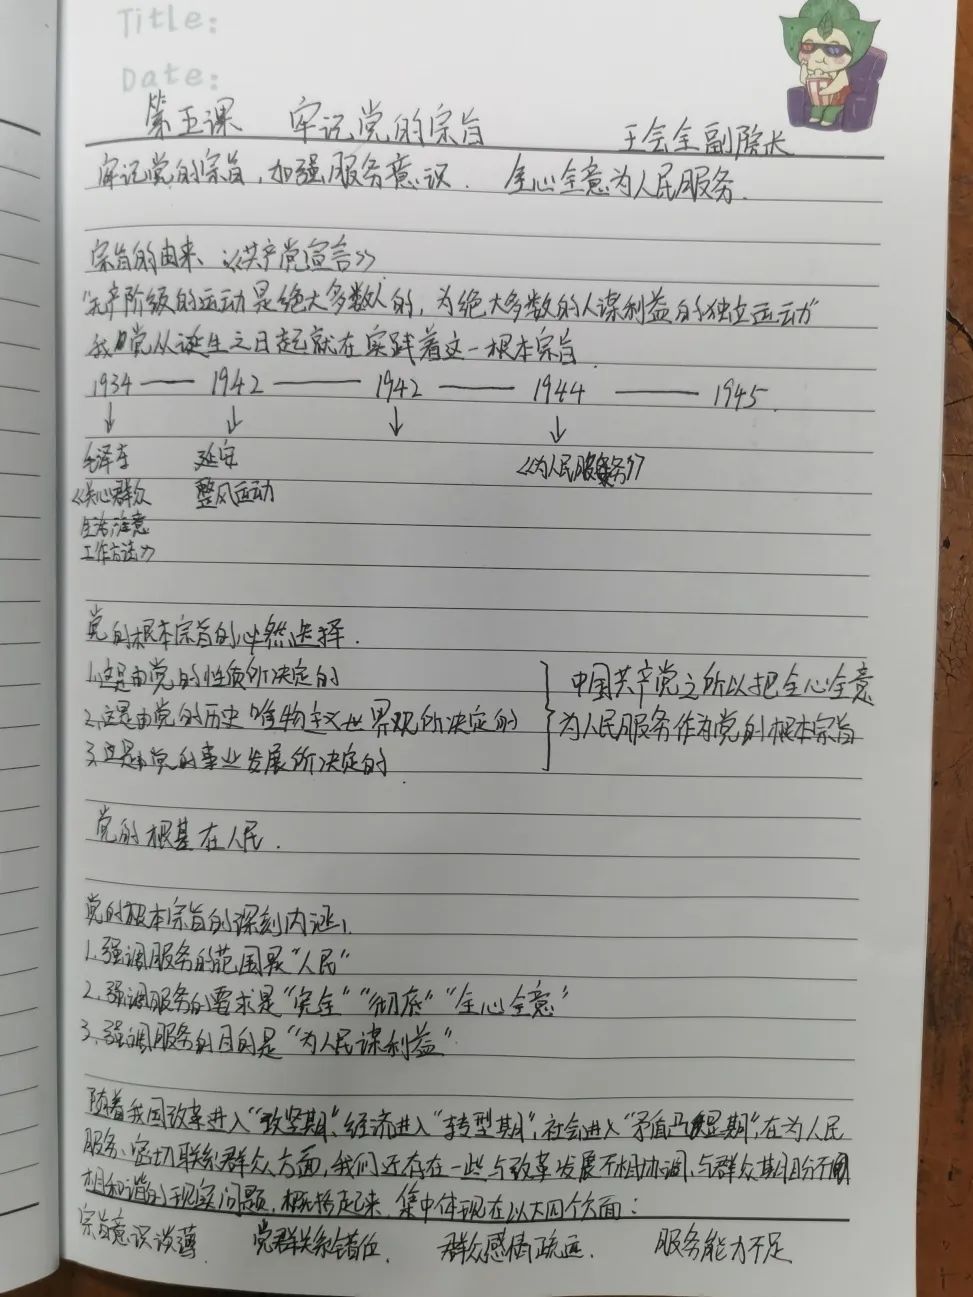 Title:
Date:
第五课 牢记党的宗旨 王会全副院长
牢记党的宗旨，加强服务意识． 全心全意为人民服务．
宗旨的由来、《共产党宣言》
"无产阶级的运动是绝大多数人的，为绝大多数的人谋利益的独立运动"
我党从诞生之日起就在实践着这一根本宗旨
1934 —— 1942 —— 1942 —— 1944 —— 1945．
↓ ↓ ↓ ↓
毛泽东 延安 《为人民服务》
《关心群众 整风运动
生活，注意
工作方法》
党的根本宗旨的必然选择．
1.这是由党的性质所决定的
2.这是由党的历史唯物主义世界观所决定的
3.这是由党的事业发展所决定的
中国共产党之所以把全心全意
为人民服务作为党的根本宗旨
党的根基在人民．
党的根本宗旨的深刻内涵，
1.强调服务的范围是"人民"
2.强调服务的要求是"完全""彻底""全心全意"
3.强调服务的目的是"为人民谋利益"
随着我国改革进入"攻坚期"，经济进入"转型期"，社会进入"矛盾凸显期"，在为人民
服务、密切联系群众方面，我们还存在一些与改革发展不相协调、与群众期盼不
相和谐的现实问题，概括起来，集中体现在以大四个方面：
宗旨意识淡薄． 党群关系错位． 群众感情疏远． 服务能力不足